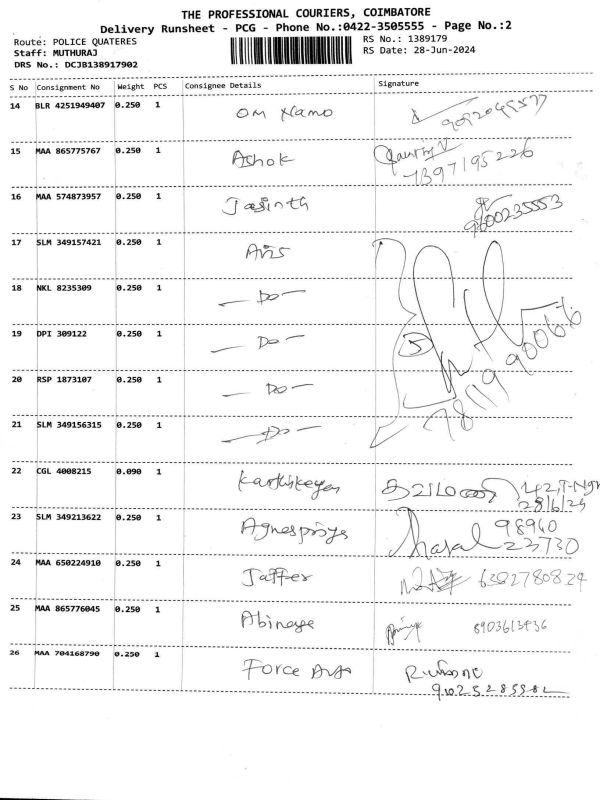 THE PROFESSIONAL COURIERS, COIMBATORE
Delivery Runsheet - PCG - Phone No.:0422-3505555 - Page No.:2
Route: POLICE QUATERES
Staff: MUTHURAJ
DRS No.: DCJB138917902
RS No.: 1389179
RS Date: 28-Jun-2024
S No Consignment No Weight PCS Consignee Details Signature
14 BLR 4251949407 0.250 1 OM Namo
15 MAA 865775767 0.250 1 Ashok
7397195226
16 MAA 574873957 0.250 1 Jasinth
9600235553
17 SLM 349157421 0.250 1
18 NKL 8235309 0.250 1 — Do —
19 DPI 309122 0.250 1 — Do — 5
20 RSP 1873107 0.250 1 — Do —
21 SLM 349156315 0.250 1 — Do —
22 CGL 4008215 0.090 1 Karthikeyan
28/6/24
23 SLM 349213622 0.250 1 Agnespriya 98940
23730
24 MAA 650224910 0.250 1 Jaffer 6382780824
25 MAA 865776045 0.250 1 Abinaya 8903613436
26 MAA 704168790 0.250 1 Force